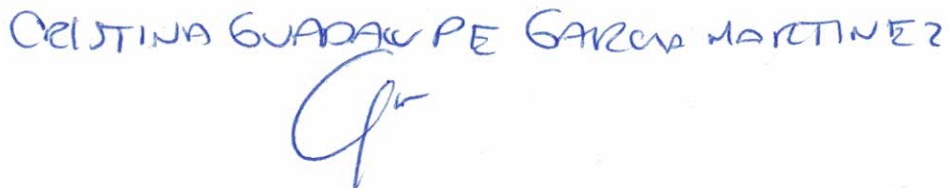 CRISTINA GUADALUPE GARCIA MARTINEZ